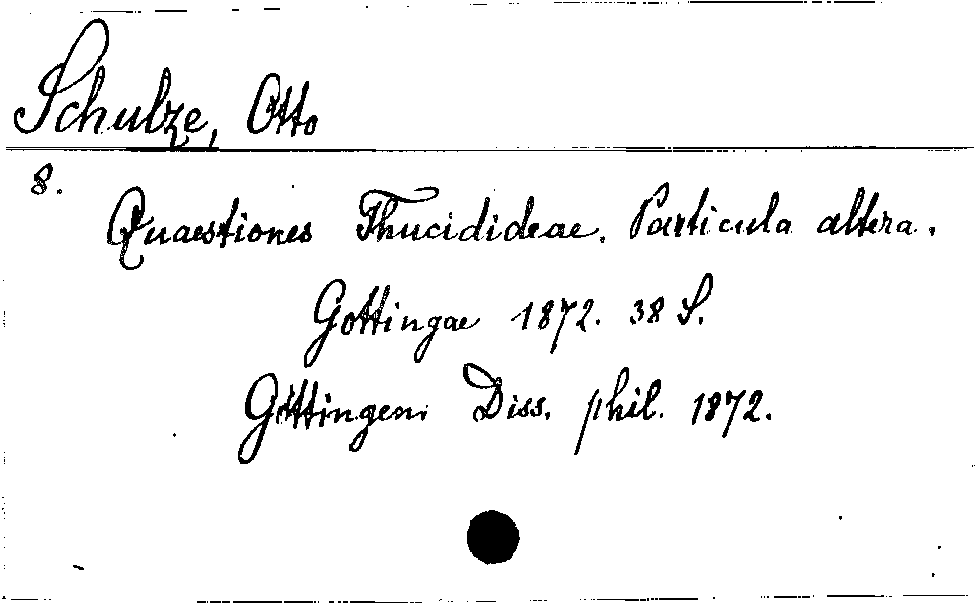 Schulze, Otto
8.
Quaestiones Thucidideae. Particula altera.
Gottingae 1872. 38 S.
Göttingen. Diss. phil. 1872.